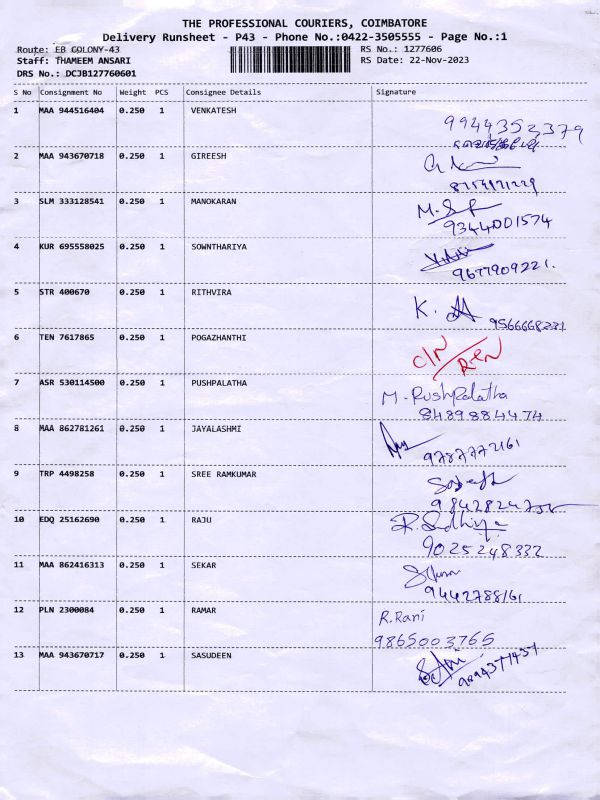 THE PROFESSIONAL COURIERS, COIMBATORE
Delivery Runsheet - P43 - Phone No.:0422-3505555 - Page No.:1
Route: EB COLONY-43 RS No.: 1277606
Staff: THAMEEM ANSARI RS Date: 22-Nov-2023
DRS No.: DCJB127760601
S No Consignment No Weight PCS Consignee Details Signature
1 MAA 944516404 0.250 1 VENKATESH
9944353379
2 MAA 943670718 0.250 1 GIREESH
3 SLM 333128541 0.250 1 MANOKARAN
9344001574
4 KUR 695558025 0.250 1 SOWNTHARIYA
9677909221.
5 STR 400670 0.250 1 RITHVIRA K.
9566668231
6 TEN 7617865 0.250 1 POGAZHANTHI
7 ASR 530114500 0.250 1 PUSHPALATHA M. Pushpalatha
8489884474
8 MAA 862781261 0.250 1 JAYALASHMI
9787772161
9 TRP 4498258 0.250 1 SREE RAMKUMAR
10 EDQ 25162690 0.250 1 RAJU R. Sadhiya
9025248332
11 MAA 862416313 0.250 1 SEKAR
9442788161
12 PLN 2300084 0.250 1 RAMAR R. Rani
9865003765
13 MAA 943670717 0.250 1 SASUDEEN